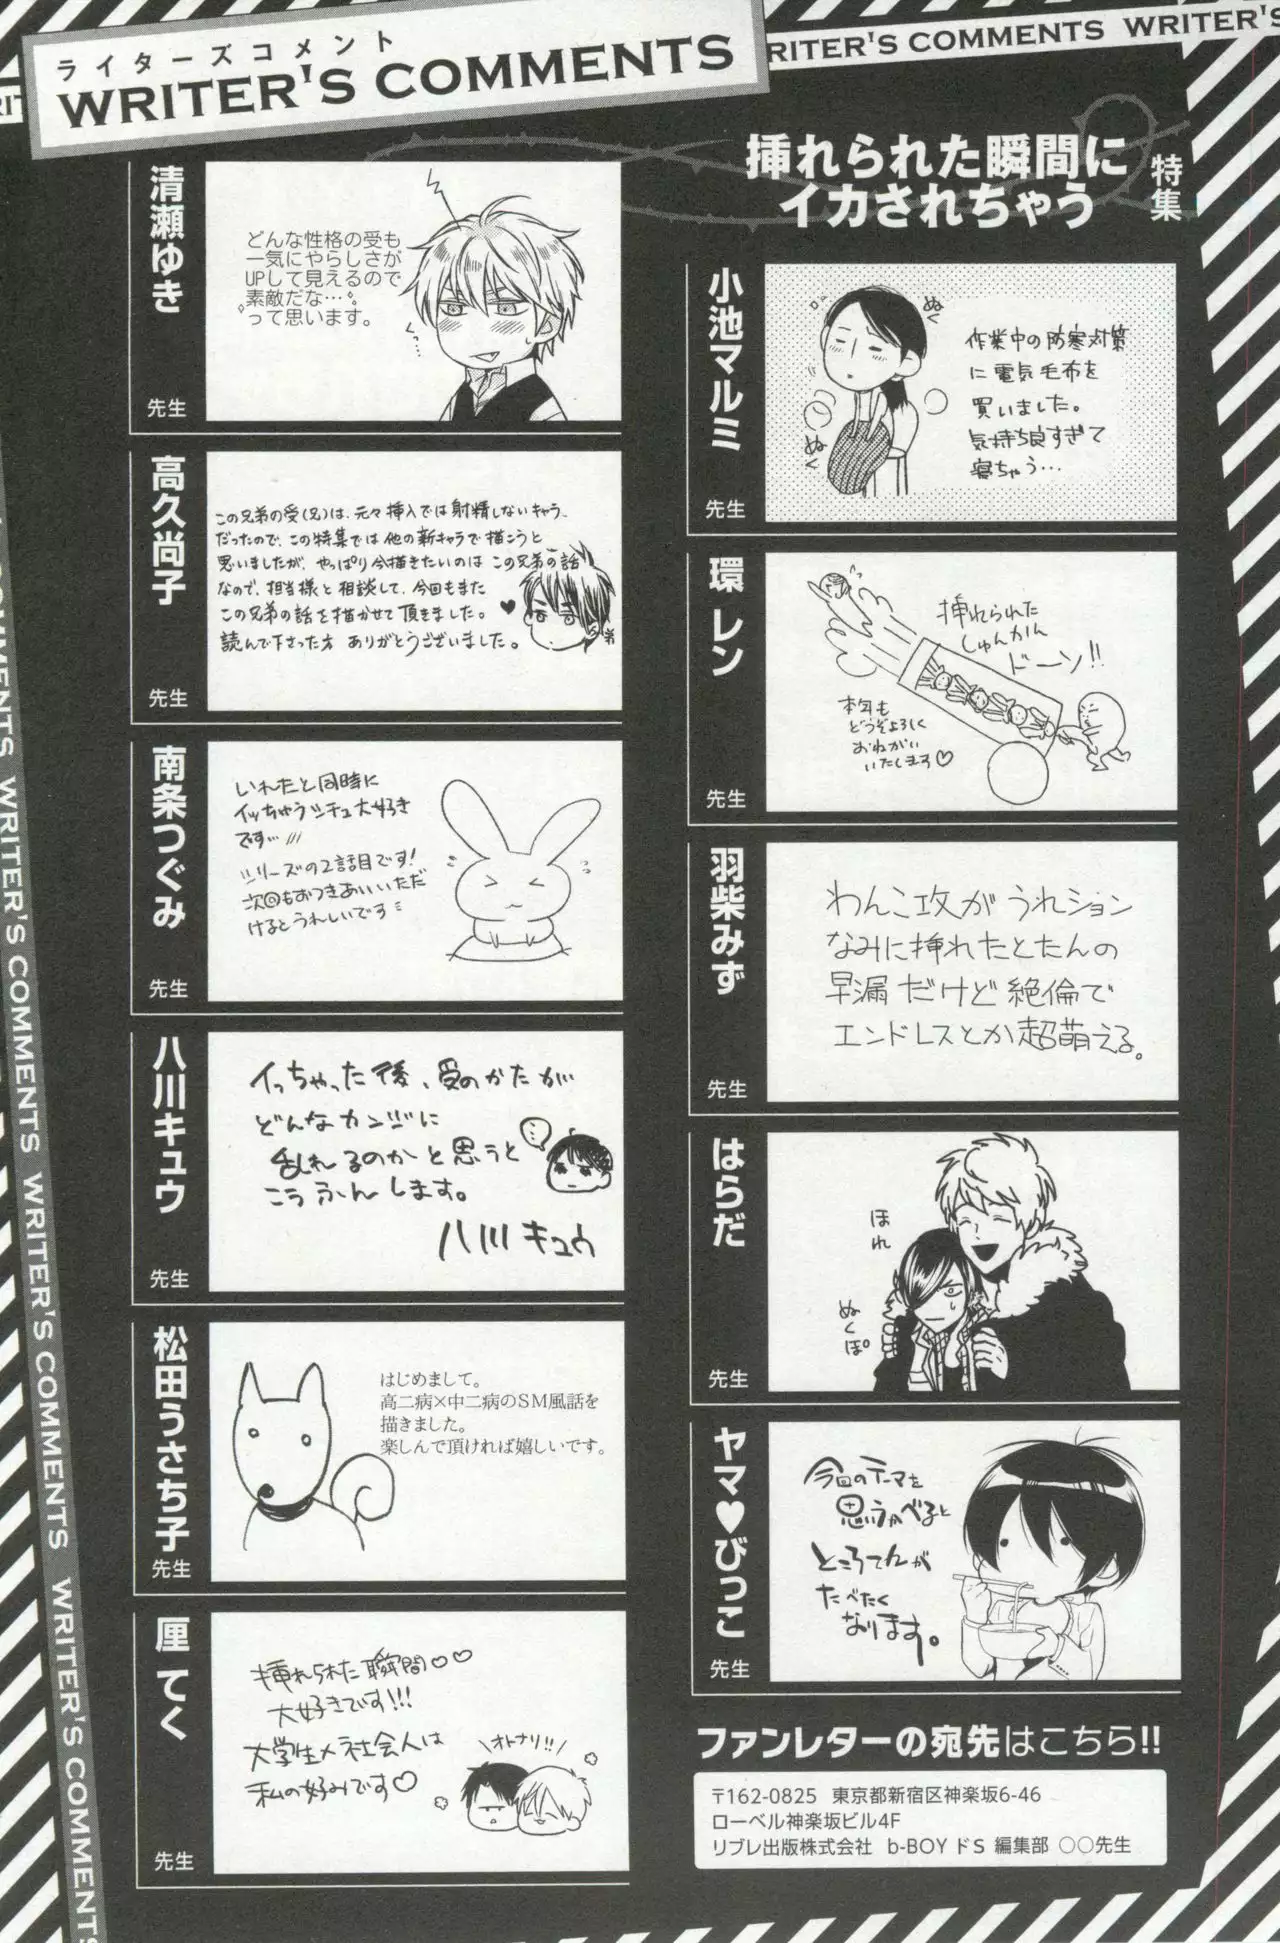 ライターズコメント
WRITER'S COMMENTS
RITER'S COMMENTS WRITER'S
特集
挿れられた瞬間に
イカされちゃう
小池マルミ先生
ぬく
ぬく
作業中の防寒対策
に電気毛布を
買いました。
気持ち良すぎて
寝ちゃう…
環レン先生
挿れられた
しゅんかん
ドーン!!
本年も
どうぞよろしく
おねがい
いたします♡
羽柴みず先生
わんこ攻がうれション
なみに挿れたとたんの
早漏だけど絶倫で
エンドレスとか超萌える。
はらだ先生
ほれ
ぬくぽ
ヤマ♥びっこ先生
今回のテーマを
思いうかべると
ところてんが
たべたく
なります。
ファンレターの宛先はこちら!!
〒162-0825 東京都新宿区神楽坂6-46
ローベル神楽坂ビル4F
リブレ出版株式会社 b-BOY ドS 編集部 ○○先生
清瀬ゆき先生
どんな性格の受も
一気にやらしさが
UPして見えるので
素敵だな…。
って思います。
くっ…
高久尚子先生
この兄弟の受(兄)は、元々挿入では射精しないキャラ
だったので、この特集では他の新キャラで描こうと
思いましたが、やっぱり今描きたいのはこの兄弟の話
なので、担当様と相談して、今回もまた
この兄弟の話を描かせて頂きました。
読んで下さった方ありがとうございました。
弟
南条つぐみ先生
いれたと同時に
イッちゃうシチュ大好き
です…
シリーズの2話目です!
次回もおつきあいいただ
けるとうれしいです
八川キュウ先生
イっちゃった後、受のかたが
どんなカンジに
乱れるのかと思うと
こうふんします。
…
八川キュウ
松田うさち子先生
はじめまして。
高二病×中二病のSM風話を
描きました。
楽しんで頂ければ嬉しいです。
厘てく先生
挿れられた瞬間♡♡
大好きです!!!
大学生×社会人は
私の好みです♡
オトナリ!!
WRITER'S COMMENTS WRITER'S COMMENTS WRITER'S COMMENTS